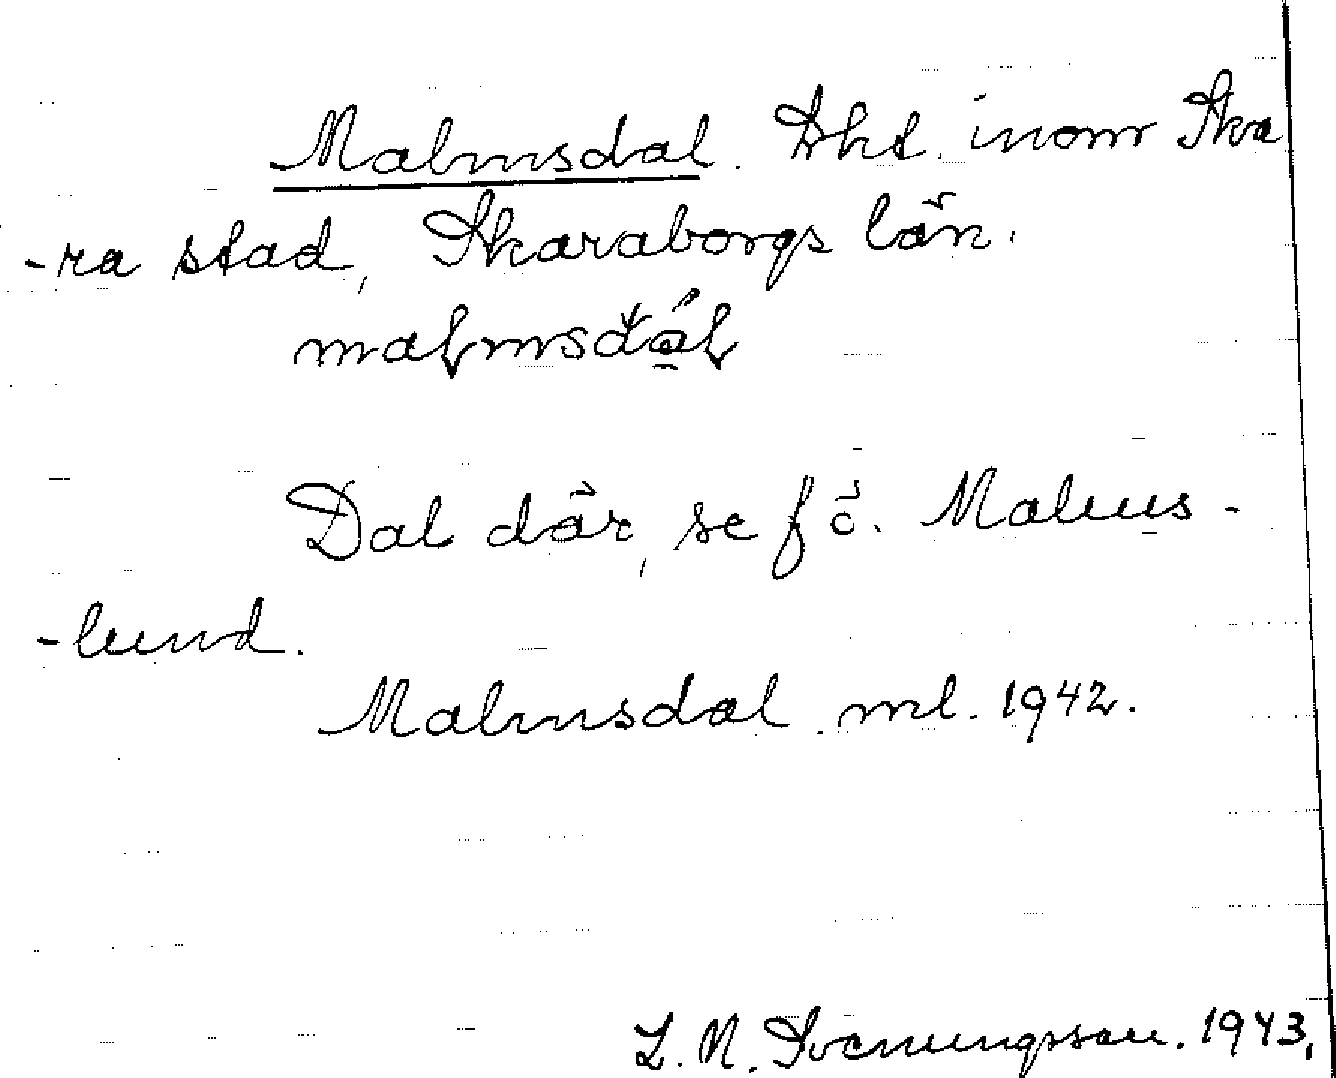 Malmsdal. Lht. inom Ska
-ra stad, Skaraborgs län.
malmsdál
Dal där, se fö. Malms-
-lund.
Malmsdal ml. 1942.
L. N. Svenungsson. 1943.